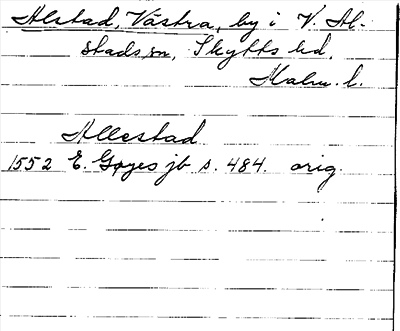 Alstad, Västra, by i V. Al-
stads sn, Skytts hd,
Malm. l.
Allestad
1552 E. Gøyes jb s. 484. orig.